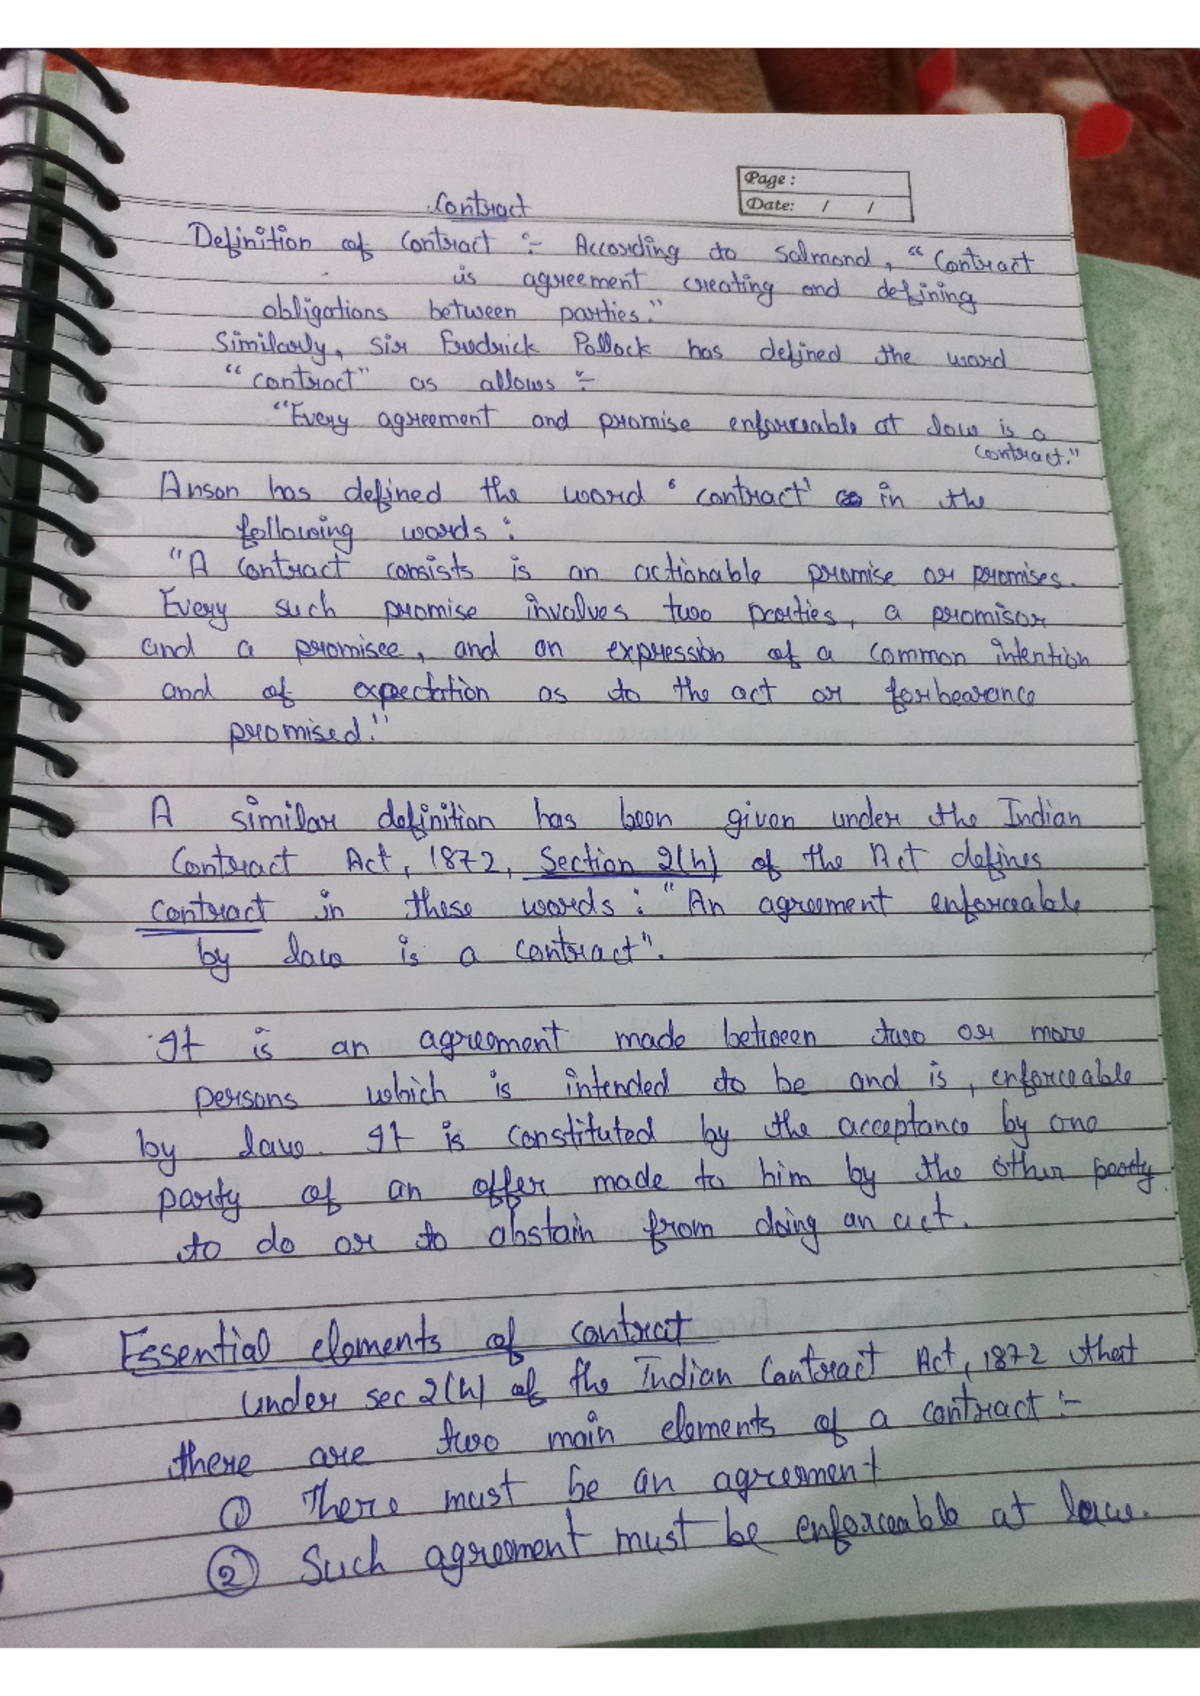 Page :
Date: / /
Contract
Definition of Contract :- According to Salmond, "Contract
is agreement creating and defining
obligations between parties."
Similarly, Sir Fredrick Pollock has defined the word
"contract" as allows :-
"Every agreement and promise enforceable at law is a
contract."
Anson has defined the word 'contract' in the
following words :
"A Contract consists is an actionable promise or promises.
Every such promise involves two parties, a promisor
and a promisee, and an expression of a common intention
and of expectation as to the act or forbearance
promised."
A similar definition has been given under the Indian
Contract Act, 1872, Section 2(h) of the Act defines
contract in these words : "An agreement enforceable
by law is a contract".
It is an agreement made between two or more
persons which is intended to be and is, enforceable
by law. It is constituted by the acceptance by one
party of an offer made to him by the other party
to do or to abstain from doing an act.
Essential elements of contrat
Under sec 2(h) of the Indian Contract Act, 1872 that
there are two main elements of a contract :-
① There must be an agreement
② Such agreement must be enforceable at law.